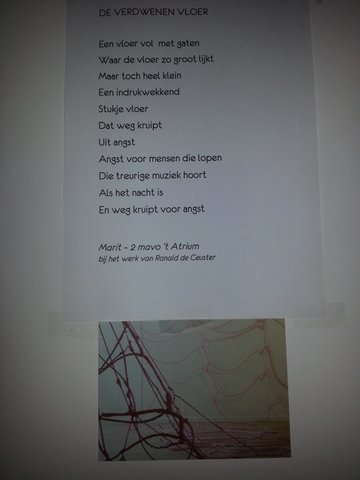 DE VERDWENEN VLOER
Een vloer vol met gaten
Waar de vloer zo groot lijkt
Maar toch heel klein
Een indrukwekkend
Stukje vloer
Dat weg kruipt
Uit angst
Angst voor mensen die lopen
Die treurige muziek hoort
Als het nacht is
En weg kruipt voor angst
Marit - 2 mavo 't Atrium
bij het werk van Ronald de Ceuster